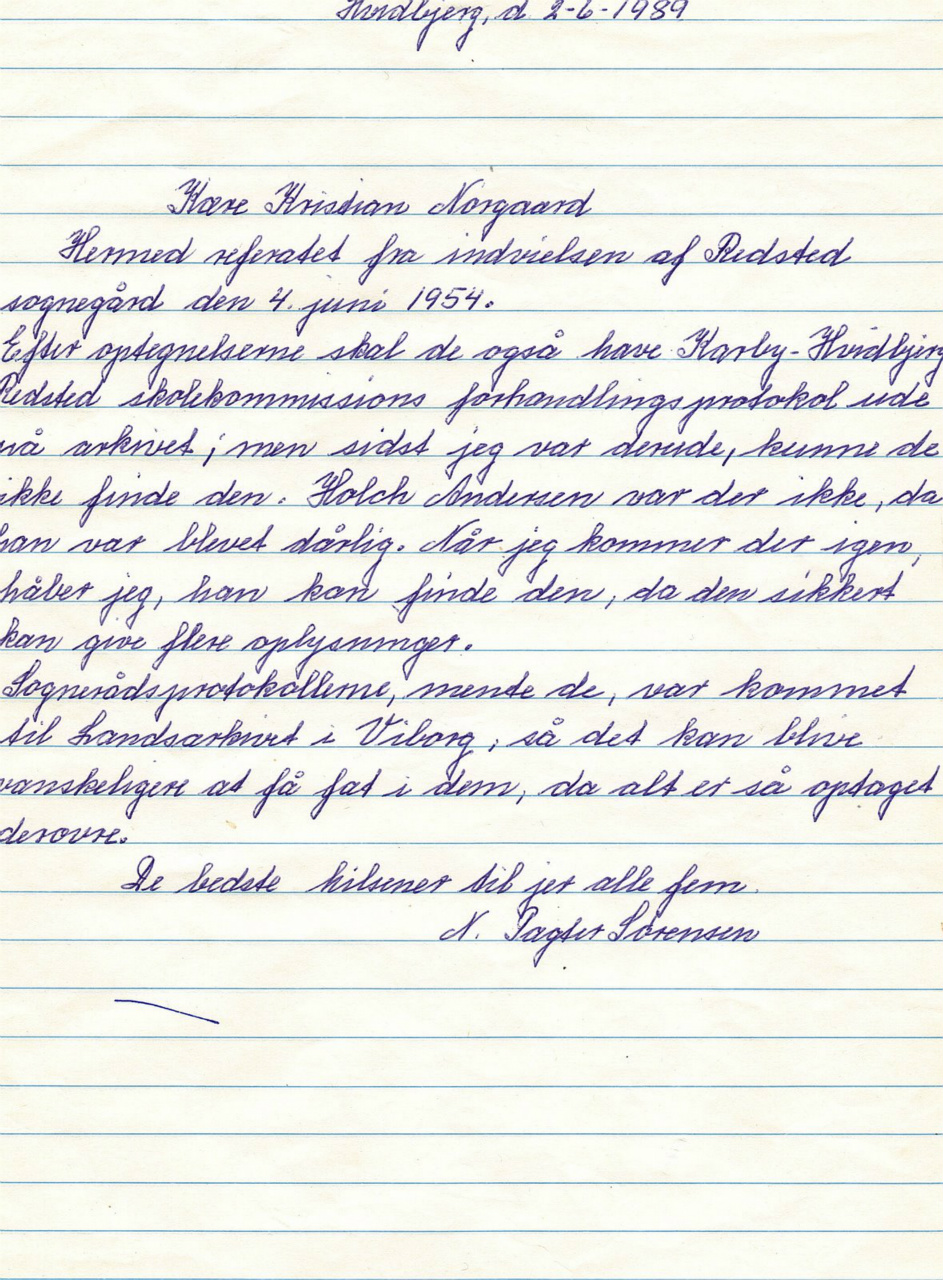 Hvidbjerg, d 2-6-1989
Kære Kristian Nørgaard
Hermed referatet fra indvielsen af Redsted
sognegård den 4. juni 1954.
Efter optegnelserne skal de også have Karby-Hvidbjerg
Redsted skolekommissions forhandlingsprotokol ude
på arkivet; men sidst jeg var derude, kunne de
ikke finde den. Holch Andersen var der ikke, da
han var blevet dårlig. Når jeg kommer der igen,
håber jeg, han kan finde den, da den sikkert
kan give flere oplysninger.
Sognerådsprotokollerne, mente de, var kommet
til Landsarkivet i Viborg, så det kan blive
vanskeligere at få fat i dem, da alt er så optaget
derovre.
De bedste hilsener til jer alle fem.
N. Pagter Sørensen